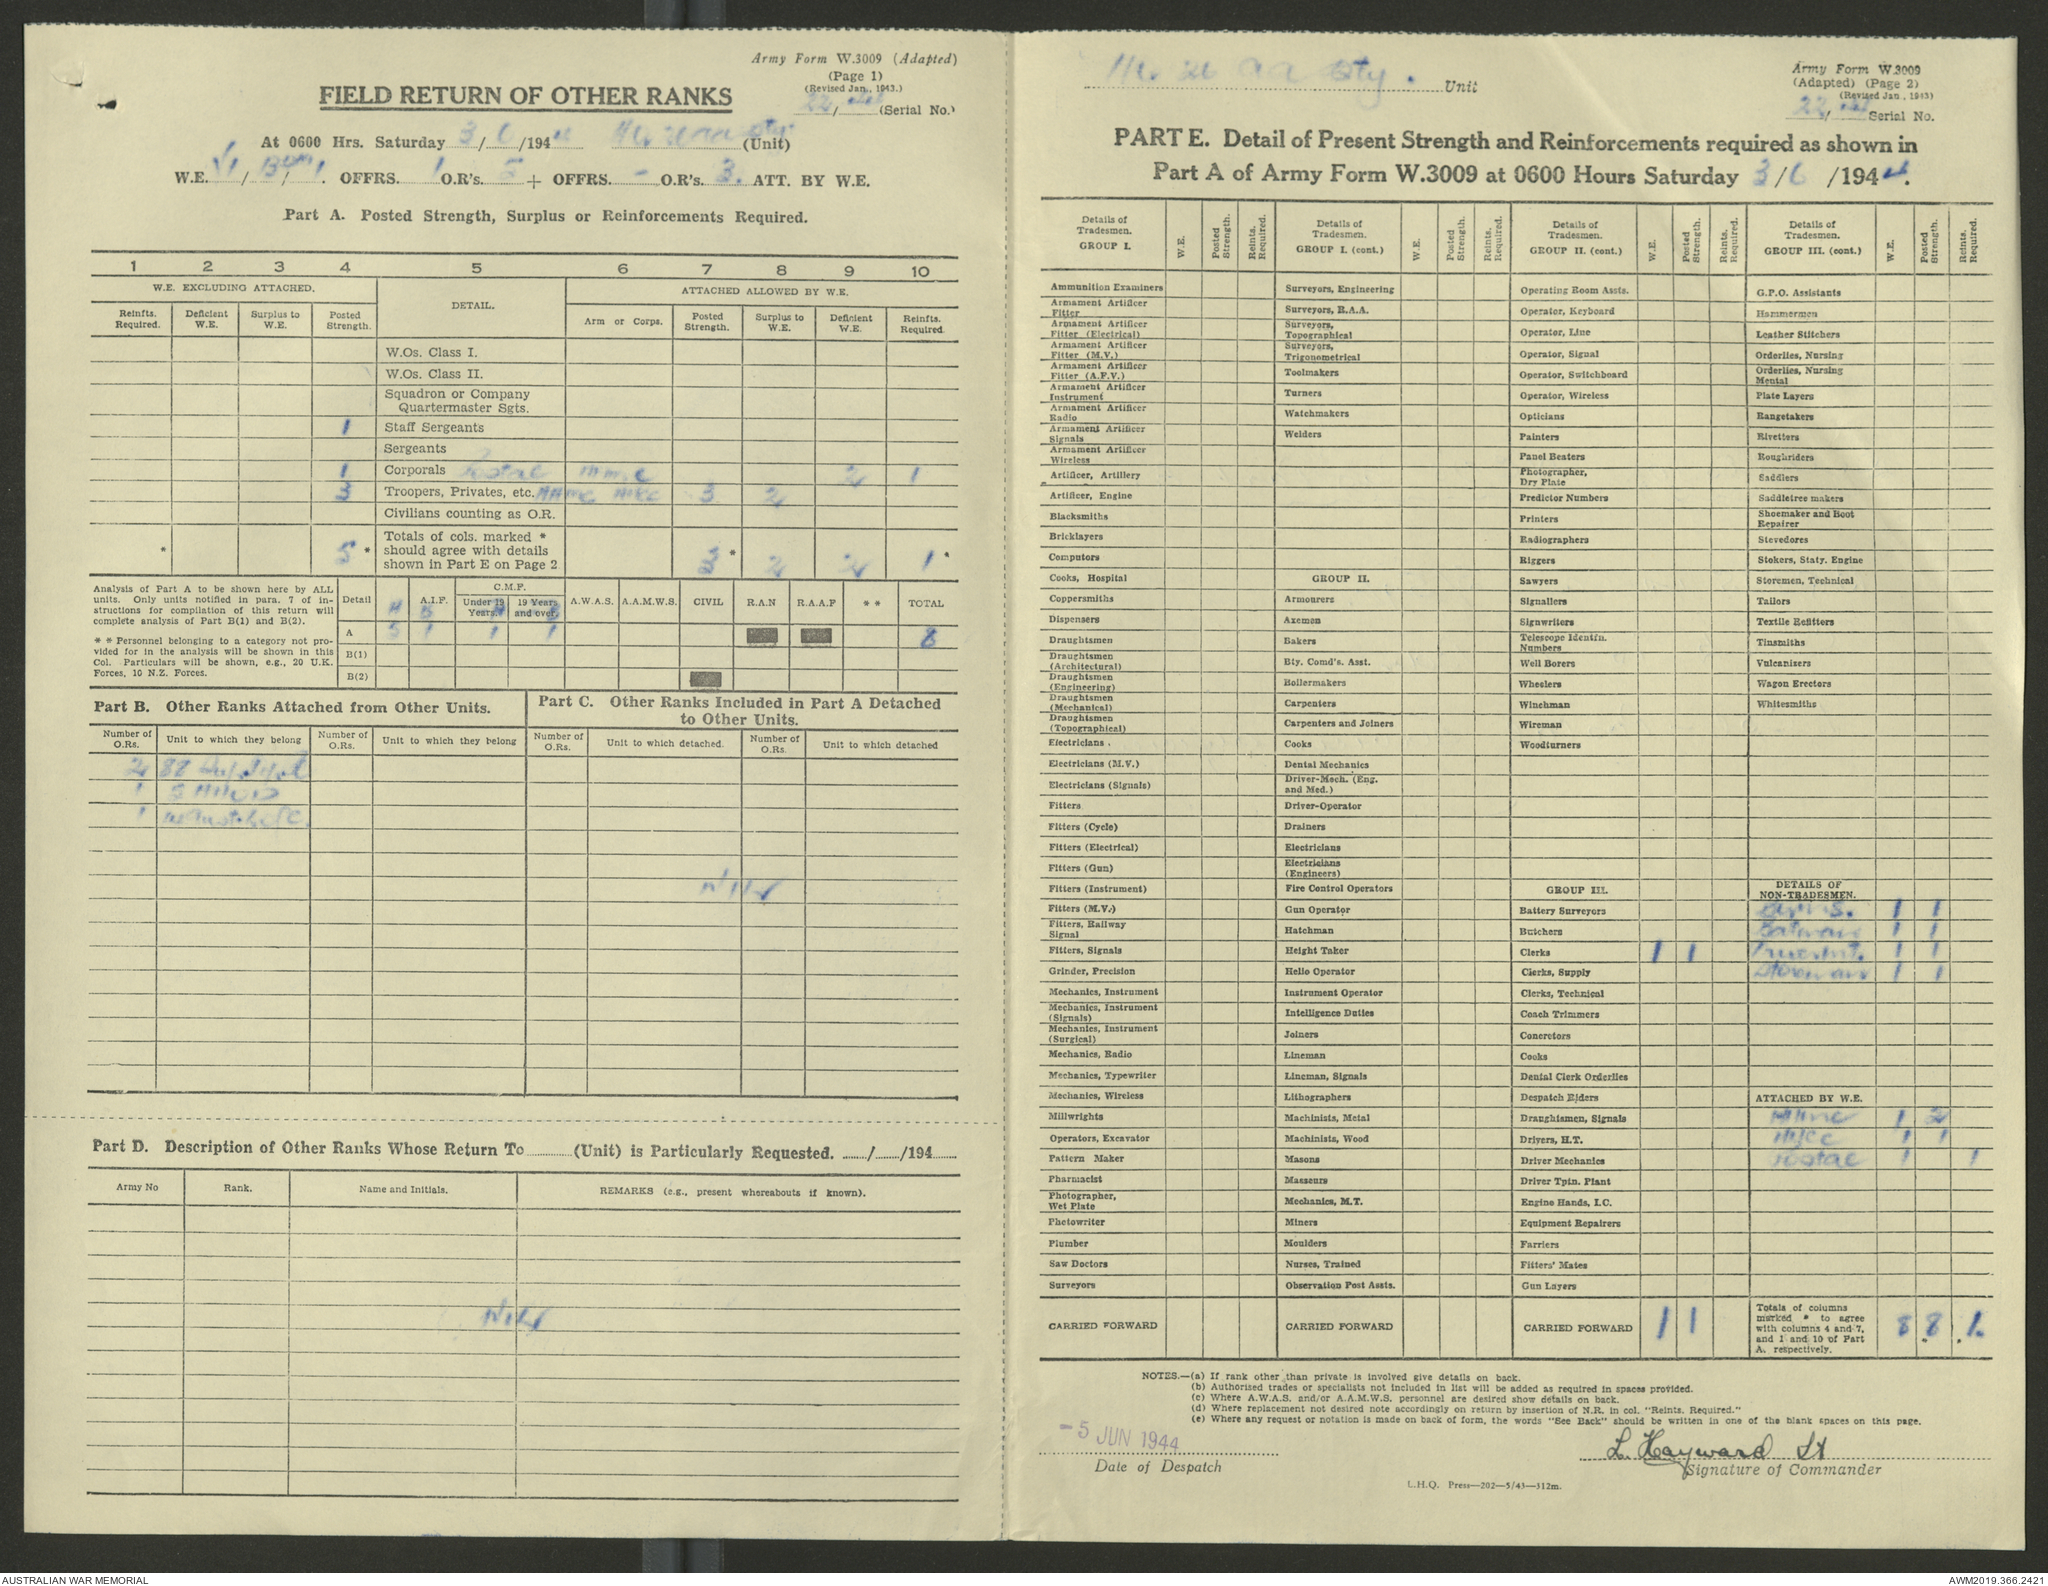 Army Form W.3009 (Adapted)
(Page 1)
(Revised Jan., 1943.)
FIELD RETURN OF OTHER RANKS
22/44 (Serial No.)
At 0600 Hrs. Saturday 3/6/1944 (Unit)
W.E. / / . OFFRS. 1 O.R's. 5 + OFFRS. - O.R's. 3. ATT. BY W.E.
Part A. Posted Strength, Surplus or Reinforcements Required.
1 2 3 4 5 6 7 8 9 10
W.E. EXCLUDING ATTACHED. DETAIL. ATTACHED ALLOWED BY W.E.
Reinfts. Required. Deficient W.E. Surplus to W.E. Posted Strength. Arm or Corps. Posted Strength. Surplus to W.E. Deficient W.E. Reinfts. Required.
W.Os. Class I.
W.Os. Class II.
Squadron or Company
Quartermaster Sgts.
1 Staff Sergeants
Sergeants
1 Corporals Postal 2 1
3 Troopers, Privates, etc. 3 2
Civilians counting as O.R.
* 5 * Totals of cols. marked * should agree with details shown in Part E on Page 2 3 * 2 2 1 *
Analysis of Part A to be shown here by ALL
units. Only units notified in para. 7 of in-
structions for compilation of this return will
complete analysis of Part B(1) and B(2).
* * Personnel belonging to a category not pro-
vided for in the analysis will be shown in this
Col. Particulars will be shown, e.g., 20 U.K.
Forces, 10 N.Z. Forces.
Detail A.I.F. C.M.F. Under 19 Years. 19 Years and over. A.W.A.S. A.A.M.W.S. CIVIL R.A.N R.A.A.F * * TOTAL
A 5 1 1 1 8
B(1)
B(2)
Part B. Other Ranks Attached from Other Units.
Part C. Other Ranks Included in Part A Detached
to Other Units.
Number of O.Rs. Unit to which they belong Number of O.Rs. Unit to which they belong Number of O.Rs. Unit to which detached. Number of O.Rs. Unit to which detached
2 88
1
1
NIL
Part D. Description of Other Ranks Whose Return To (Unit) is Particularly Requested. / /194
Army No Rank. Name and Initials. REMARKS (e.g., present whereabouts if known).
NIL
Unit
Army Form W.3009
(Adapted) (Page 2)
(Revised Jan., 1943)
22/44 Serial No.
PART E. Detail of Present Strength and Reinforcements required as shown in
Part A of Army Form W.3009 at 0600 Hours Saturday 3/6/1944.
Details of Tradesmen. GROUP I. W.E. Posted Strength. Reints. Required.
Ammunition Examiners
Armament Artificer Fitter
Armament Artificer Fitter (Electrical)
Armament Artificer Fitter (M.V.)
Armament Artificer Fitter (A.F.V.)
Armament Artificer Instrument
Armament Artificer Radio
Armament Artificer Signals
Armament Artificer Wireless
Artificer, Artillery
Artificer, Engine
Blacksmiths
Bricklayers
Computors
Cooks, Hospital
Coppersmiths
Dispensers
Draughtsmen
Draughtsmen (Architectural)
Draughtsmen (Engineering)
Draughtsmen (Mechanical)
Draughtsmen (Topographical)
Electricians .
Electricians (M.V.)
Electricians (Signals)
Fitters
Fitters (Cycle)
Fitters (Electrical)
Fitters (Gun)
Fitters (Instrument)
Fitters (M.V.)
Fitters, Railway Signal
Fitters, Signals
Grinder, Precision
Mechanics, Instrument
Mechanics, Instrument (Signals)
Mechanics, Instrument (Surgical)
Mechanics, Radio
Mechanics, Typewriter
Mechanics, Wireless
Millwrights
Operators, Excavator
Pattern Maker
Pharmacist
Photographer, Wet Plate
Photowriter
Plumber
Saw Doctors
Surveyors
CARRIED FORWARD
Details of Tradesmen. GROUP I. (cont.) W.E. Posted Strength. Reints. Required.
Surveyors, Engineering
Surveyors, R.A.A.
Surveyors, Topographical
Surveyors, Trigonometrical
Toolmakers
Turners
Watchmakers
Welders
GROUP II.
Armourers
Axemen
Bakers
Bty. Comd's. Asst.
Boilermakers
Carpenters
Carpenters and Joiners
Cooks
Dental Mechanics
Driver-Mech. (Eng. and Med.)
Driver-Operator
Drainers
Electricians
Electricians (Engineers)
Fire Control Operators
Gun Operator
Hatchman
Height Taker
Helio Operator
Instrument Operator
Intelligence Duties
Joiners
Lineman
Lineman, Signals
Lithographers
Machinists, Metal
Machinists, Wood
Masons
Masseurs
Mechanics, M.T.
Miners
Moulders
Nurses, Trained
Observation Post Assts.
CARRIED FORWARD
Details of Tradesmen. GROUP II. (cont.) W.E. Posted Strength. Reints. Required.
Operating Room Assts.
Operator, Keyboard
Operator, Line
Operator, Signal
Operator, Switchboard
Operator, Wireless
Opticians
Painters
Panel Beaters
Photographer, Dry Plate
Predictor Numbers
Printers
Radiographers
Riggers
Sawyers
Signallers
Signwriters
Telescope Identfn. Numbers
Well Borers
Wheelers
Winchman
Wireman
Woodturners
GROUP III.
Battery Surveyors
Butchers
Clerks 1 1
Clerks, Supply
Clerks, Technical
Coach Trimmers
Concretors
Cooks
Dental Clerk Orderlies
Despatch Riders
Draughtsmen, Signals
Drivers, H.T.
Driver Mechanics
Driver Tptn. Plant
Engine Hands, I.C.
Equipment Repairers
Farriers
Fitters' Mates
Gun Layers
CARRIED FORWARD 1 1
Details of Tradesmen. GROUP III. (cont.) W.E. Posted Strength. Reints. Required.
G.P.O. Assistants
Hammermen
Leather Stitchers
Orderlies, Nursing
Orderlies, Nursing Mental
Plate Layers
Rangetakers
Rivetters
Roughriders
Saddlers
Saddletree makers
Shoemaker and Boot Repairer
Stevedores
Stokers, Staty. Engine
Storemen, Technical
Tailors
Textile Refitters
Tinsmiths
Vulcanizers
Wagon Erectors
Whitesmiths
DETAILS OF NON-TRADESMEN.
1 1
Batman 1 1
1 1
Storeman 1 1
ATTACHED BY W.E.
1 2
1 1
Postal 1 1
Totals of columns marked * to agree with columns 4 and 7, and 1 and 10 of Part A, respectively. 8 8 1.
NOTES.—(a) If rank other than private is involved give details on back.
(b) Authorised trades or specialists not included in list will be added as required in spaces provided.
(c) Where A.W.A.S. and/or A.A.M.W.S. personnel are desired show details on back.
(d) Where replacement not desired note accordingly on return by insertion of N.R. in col. "Reints. Required."
(e) Where any request or notation is made on back of form, the words "See Back" should be written in one of the blank spaces on this page.
-5 JUN 1944
Date of Despatch
L. Hayward Lt
Signature of Commander
L.H.Q. Press—202—5/43—312m.
AUSTRALIAN WAR MEMORIAL
AWM2019.366.2421